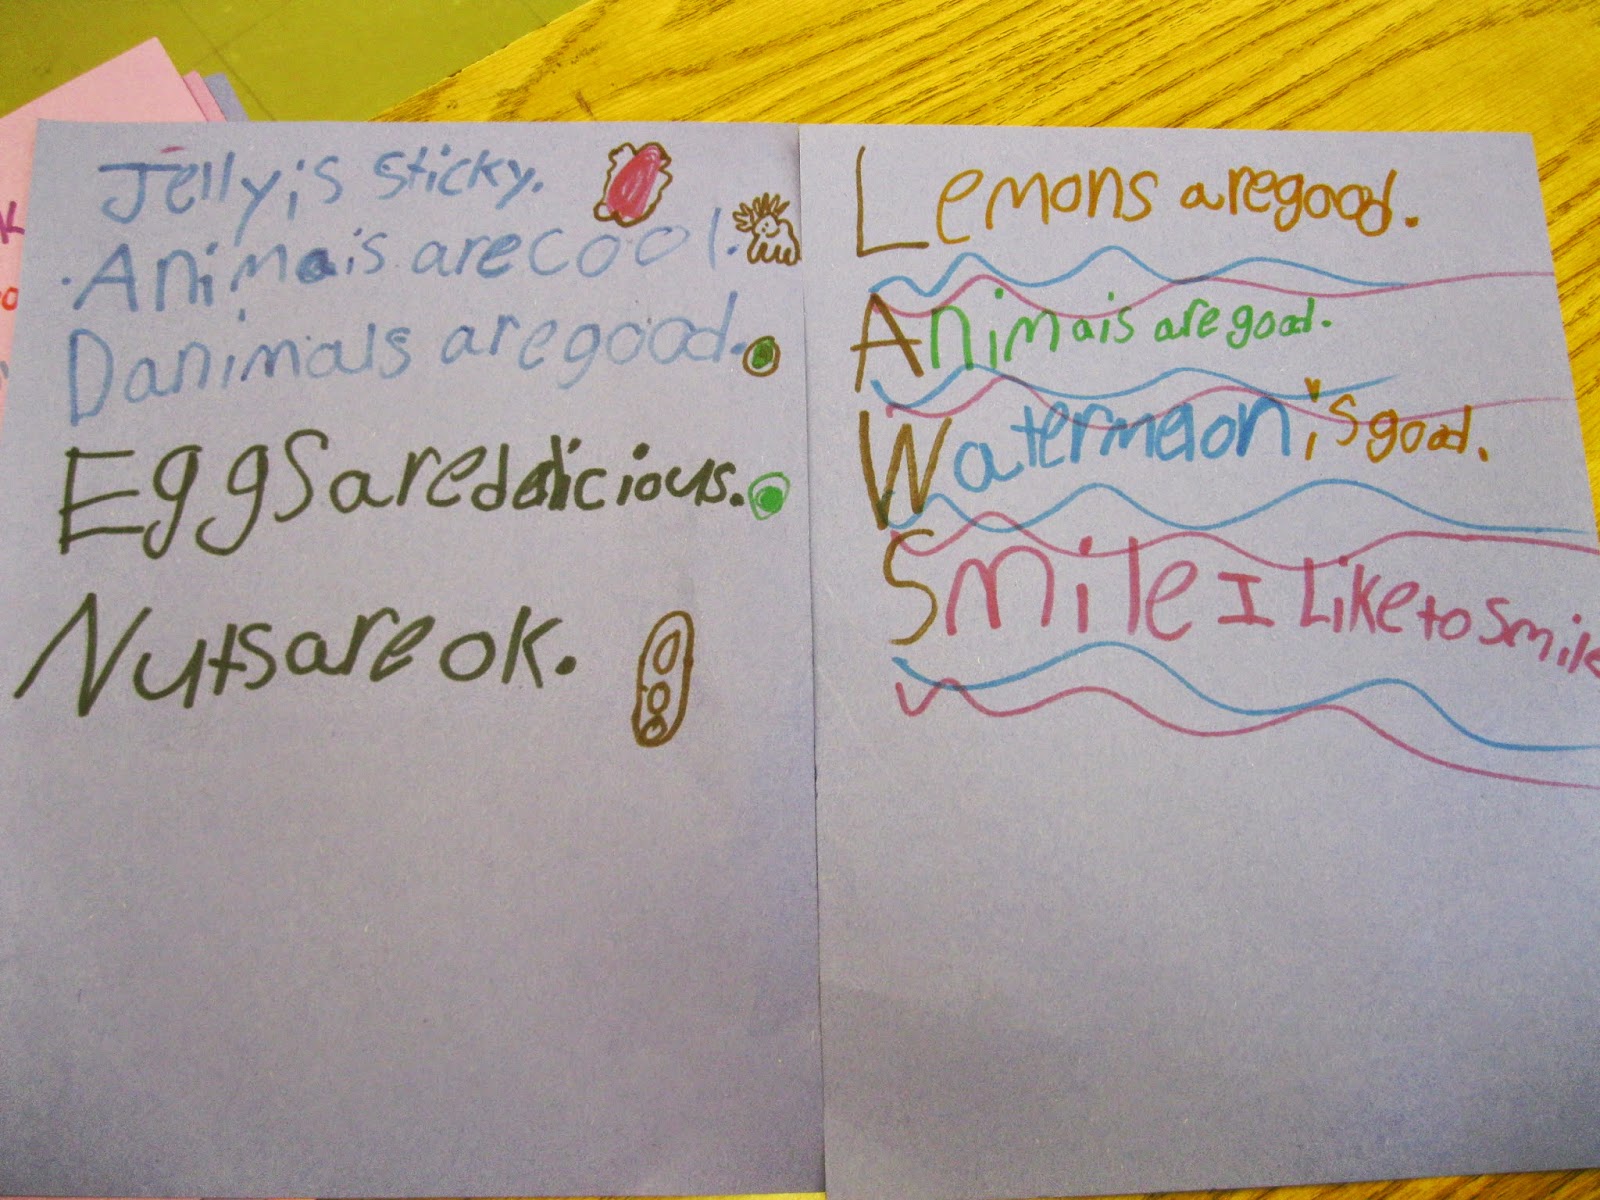 Jelly is sticky.
Animais are cool.
Danimals are good.
Eggs are delicious.
Nuts are ok.
Lemons are good.
Animais are good.
Watermelon is good.
Smile I Like to smile